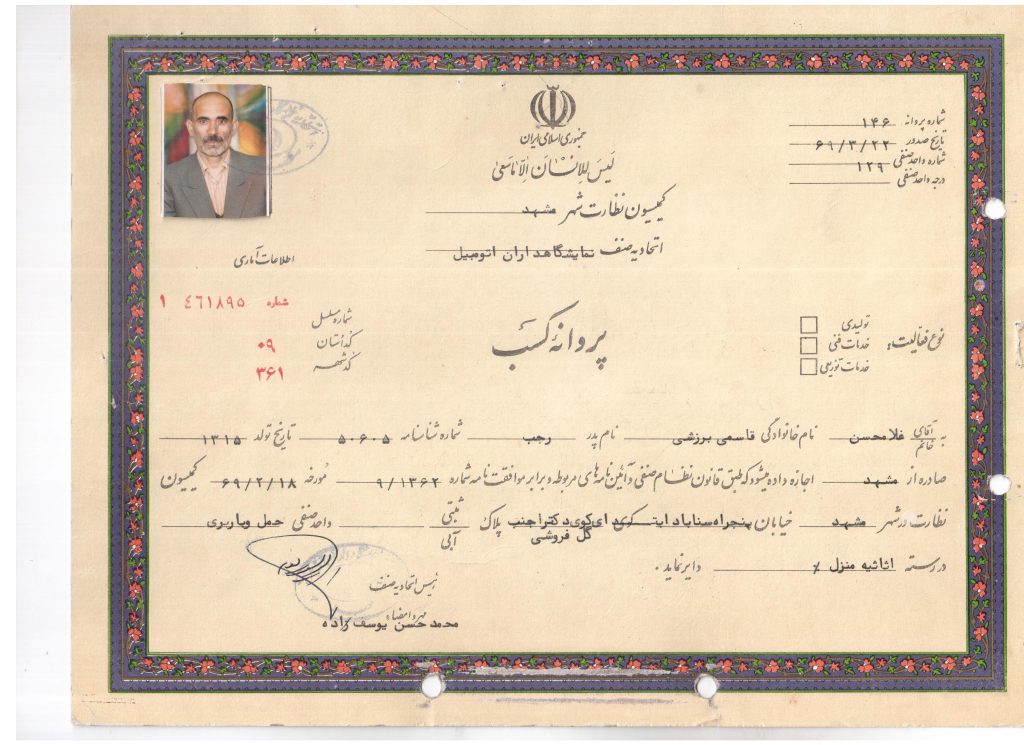 جمهوری اسلامی ایران
لَیسَ لِلاِنسانَ اِلاّ ماسَعیٰ
کمیسیون نظارت شهر مشهد
اتحادیه صنف نمایشگاهداران اتومبیل
شماره پروانه ۱۴۶
تاریخ صدور ۶۹/۳/۲۲
شماره واحد صنفی ۱۲۹
درجه واحد صنفی
اطلاعات آماری
شماره ٤٦١٨٩٥ ١
شماره مسلسل
کد استان ۰۹
کد شهر ۳۶۱
پروانهٔ کسب
نوع فعالیت:
تولیدی
خدمات فنی
خدمات توزیعی
به آقای خانم غلامحسن نام خانوادگی قاسمی برزشی نام پدر رجب شماره شناسنامه ۵۰۶۰۵ تاریخ تولد ۱۳۱۵
صادره از مشهد اجازه داده میشود که طبق قانون نظام صنفی و آئین نامه‌های مربوطه و برابر موافقت نامه شماره ۹/۱۳۶۲ مورخه ۶۹/۲/۱۸ کمیسیون
نظارت در شهر مشهد خیابان پنجراه سناباد ابتدای کوی دکترا جنب گل فروشی پلاک ثبتی آبی واحد صنفی حمل و باربری
در رسته اثاثیه منزل ٪ دایر نماید.
رئیس اتحادیه صنف
مهر و امضاء
محمد حسن یوسف زاده